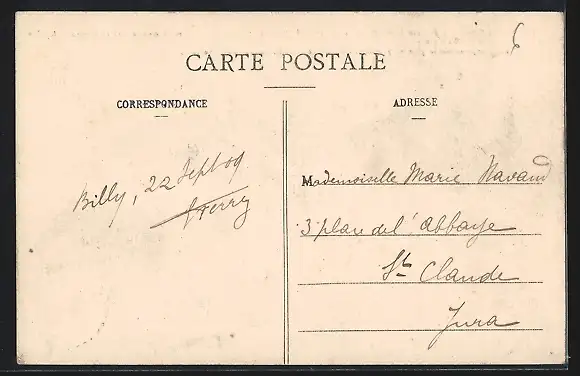 6
CARTE POSTALE
CORRESPONDANCE
ADRESSE
Billy, 22 Sept 09
Mademoiselle Marie Navand
3 place de l'abbaye
St Claude
Jura